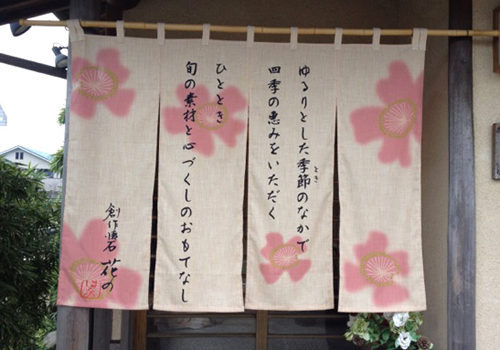 ゆるりとした季節のなかで
とき
四季の恵みをいただく
ひととき
旬の素材と心づくしのおもてなし
創作懐石 花の